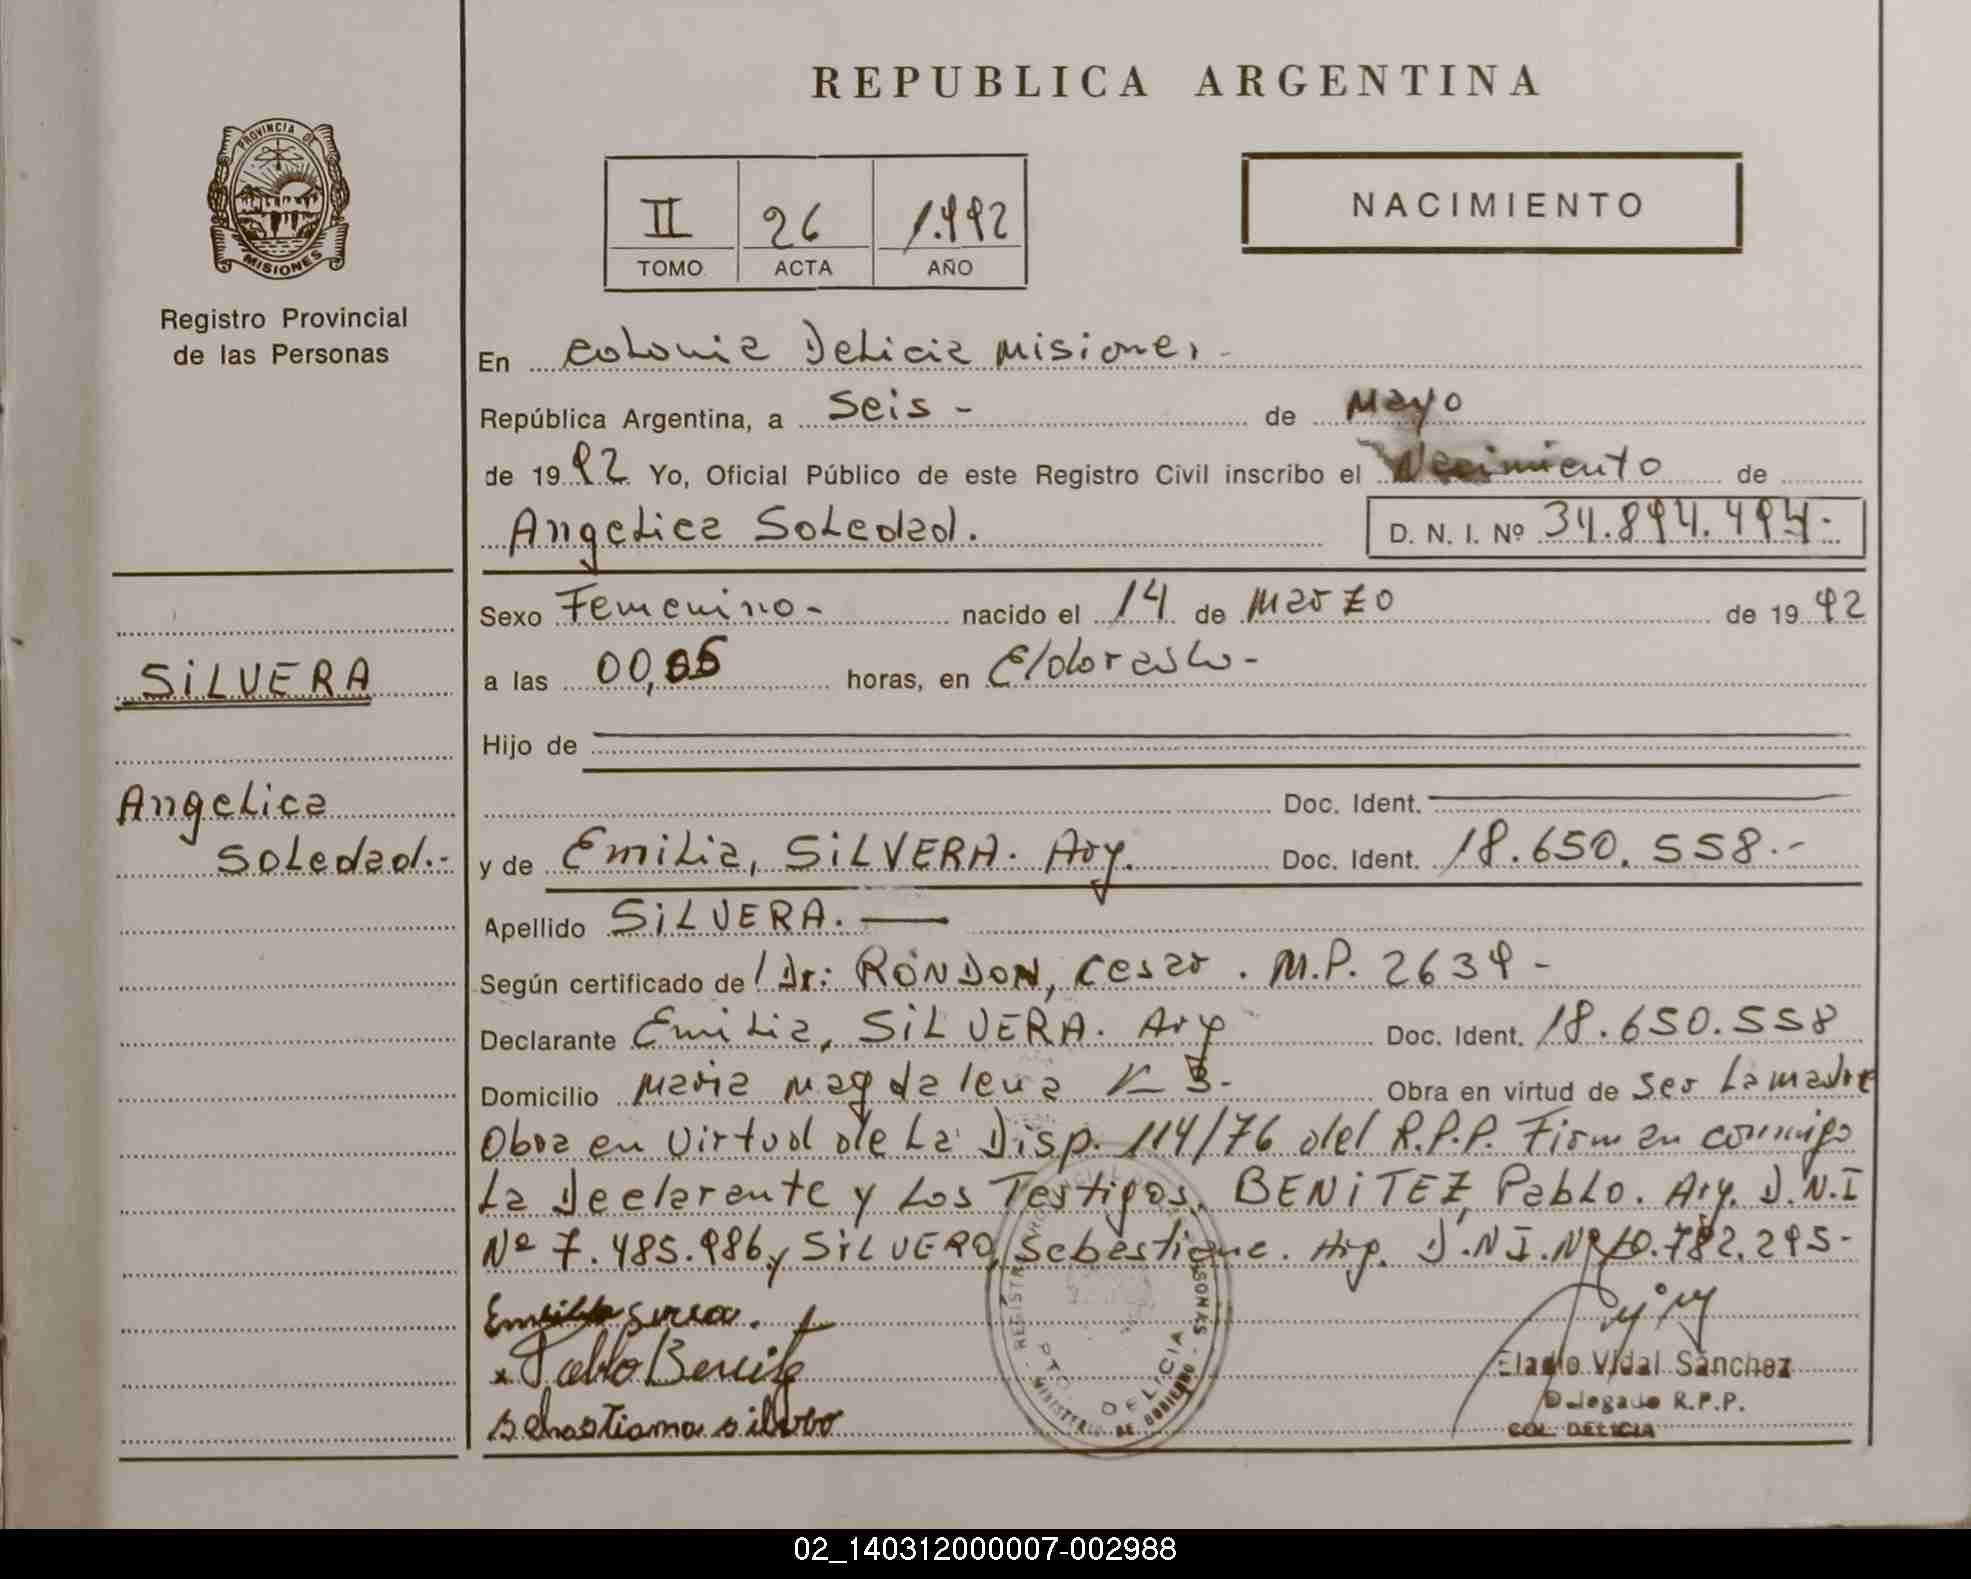 REPUBLICA ARGENTINA
PROVINCIA DE
MISIONES
Registro Provincial
de las Personas
II 26 1.992
TOMO ACTA AÑO
NACIMIENTO
En Colonia Delicia Misiones -
República Argentina, a Seis - de Mayo
de 1992 Yo, Oficial Público de este Registro Civil inscribo el Nacimiento de
Angelica Soledad. D. N. I. Nº 34.894.494.
Sexo Femenino - nacido el 14 de Marzo de 1992
SiLVERA
a las 00, horas, en Eldorado -
Hijo de
Angelica
Doc. Ident.
Soledad.-
y de Emilia, SiLVERA. Arg. Doc. Ident. 18.650.558.-
Apellido SiLVERA.
Según certificado de Dr: RONDON, Cesar. M.P. 2639 -
Declarante Emilia, SiLVERA. Arg Doc. Ident. 18.650.558
Domicilio Maria Magdalena K 3. Obra en virtud de ser La madre
Obra en Virtud de La Disp. 114/76 del R.P.P. Firman conmigo
La Declarante y Los Testigos, BENiTEZ, Pablo. Arg. D.N.I
Nº 7.485.986 y SiLVERO, Sebastiana. Arg. D.N.I. Nº 10.782.295-
Pablo Benite
Sebastiana silvero
REGISTRO PERSONAS
PTO. DELICIA
MINISTERIO DE GOBIERNO
Eladio Vidal Sánchez
Delegado R.P.P.
COL. DELICIA
02_140312000007-002988